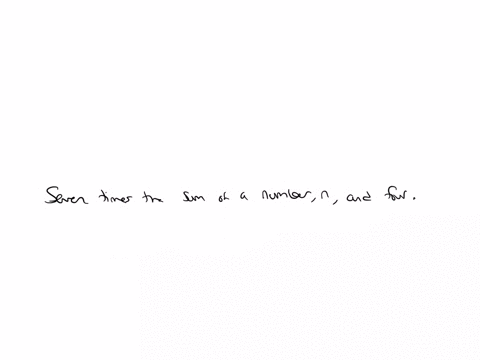 Seven times the sum of a number, n, and four.